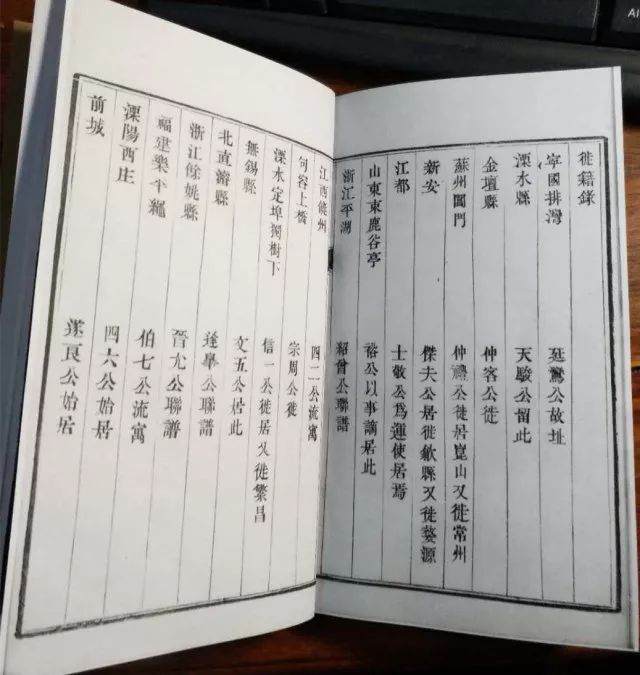 徙籍錄
寧國排灣 延鸞公故址
溧水縣 天駿公留此
金壇縣 仲客公徙
蘇州閶門 仲禮公徙居崑山又徙常州
新安 傑夫公居徙歙縣又徙婺源
江都 士敬公爲運使居焉
山東東鹿谷亭 裕公以事謫居此
浙江平湖 紹曾公聯譜
江西饒州 四二公流寓
句容上橋 宗周公徙
溧水定埠獨樹下 信一公徙居又徙繁昌
無錫縣 文五公居此
北直濬縣 達舉公聯譜
浙江餘姚縣 晉允公聯譜
福建樂平鄉 伯七公流寓
溧陽西庄 四六公始居
前城 遂良公始居
AI